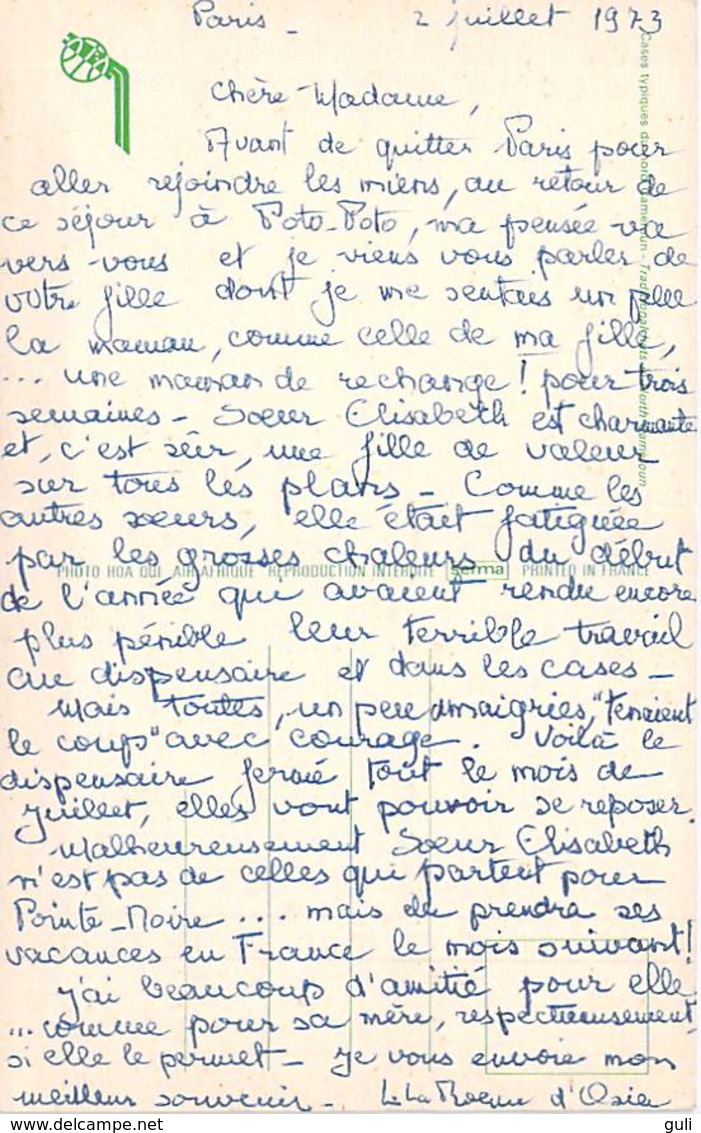 Paris - 2 juillet 1973
Chère Madame,
Avant de quitter Paris pour
aller rejoindre les miens, au retour de
ce séjour à Poto-Poto, ma pensée va
vers vous et je viens vous parler de
votre fille dont je me sentais un peu
la maman, comme celle de ma fille,
... une maman de rechange ! pour trois
semaines - Soeur Elisabeth est charmante
et, c'est sûr, une fille de valeur
sur tous les plans - Comme les
autres soeurs, elle était fatiguée
par les grosses chaleurs du début
PHOTO HOA QUI AIR AFRIQUE REPRODUCTION INTERDITE serma PRINTED IN FRANCE
de l'année que avaient rendu encore
plus pénible leur terrible travail
au dispensaire et dans les cases -
Mais toutes, un peu amaigries, "tenaient
le coup" avec courage. Voilà le
dispensaire fermé tout le mois de
Juillet, elles vont pouvoir se reposer.
Malheureusement Soeur Elisabeth
n'est pas de celles qui partent pour
Pointe-Noire ... mais du prendra ses
vacances en France le mois suivant !
J'ai beaucoup d'amitié pour elle
... comme pour sa mère, respectueusement,
si elle le permet - Je vous envoie mon
meilleur souvenir - L. La
Cases typiques du Nord Cameroun - Traditional huts North Cameroun
guli
delcampe.net